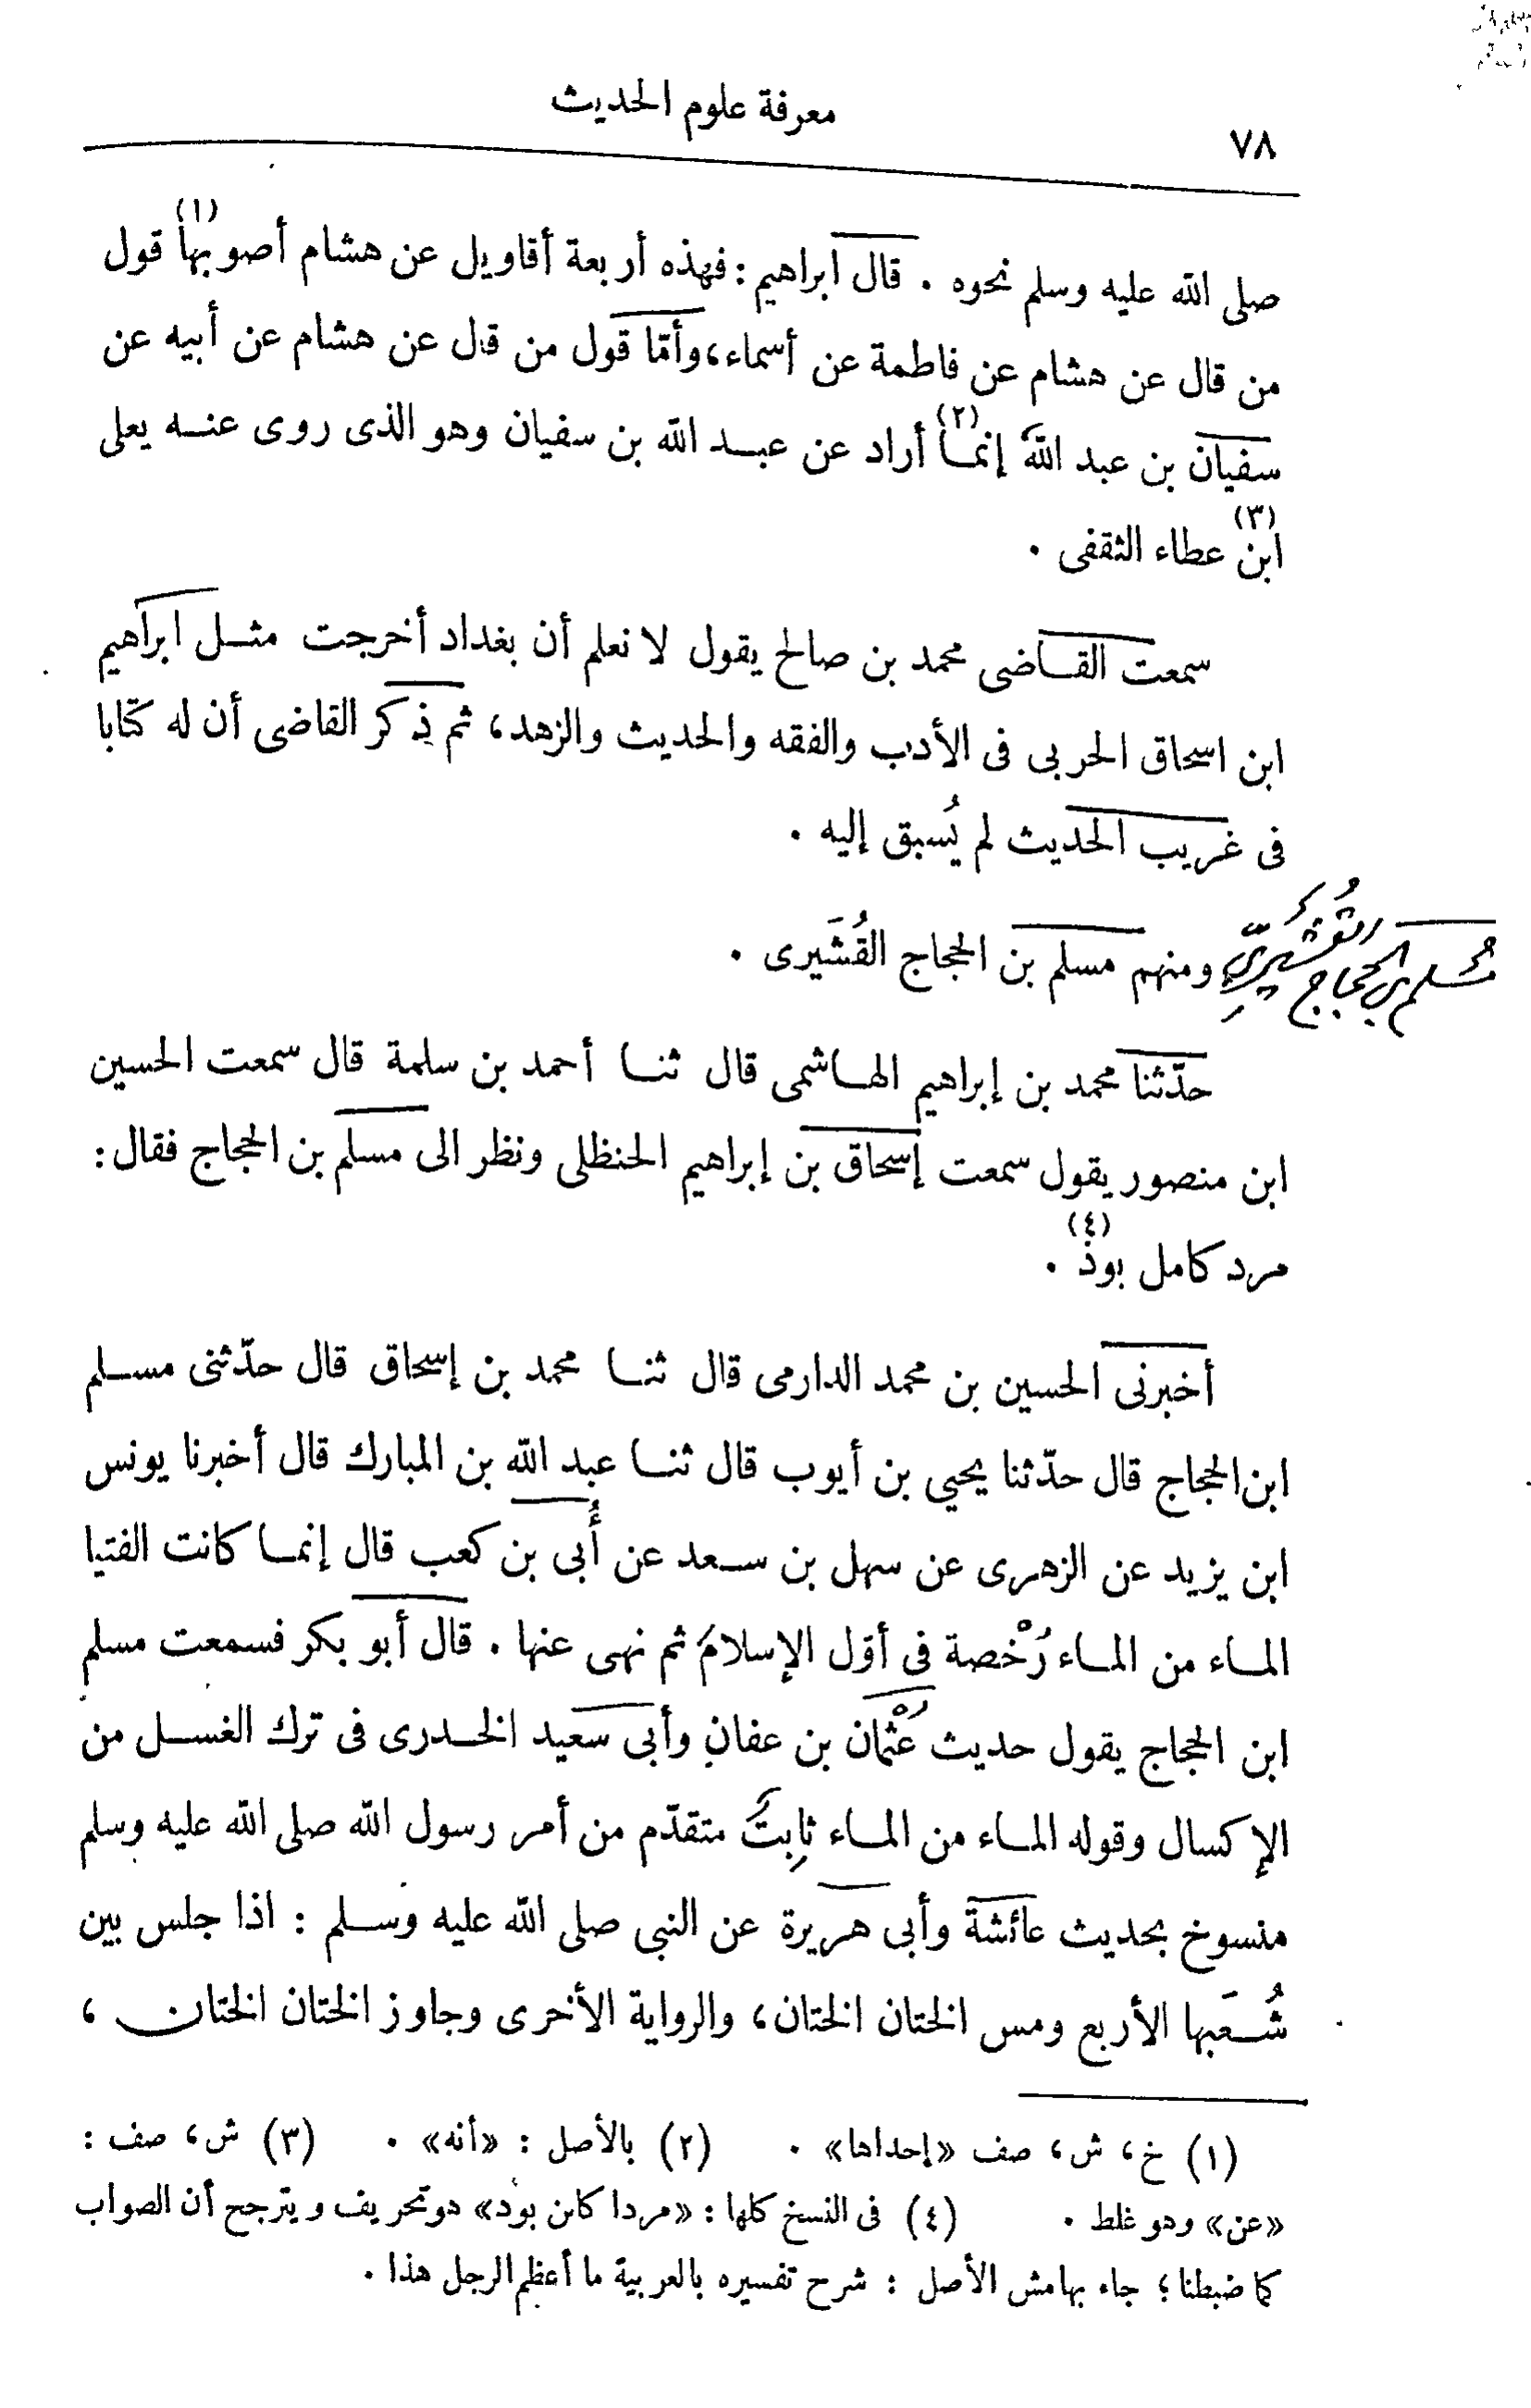 معرفة علوم الحديث
٧٨
صلى الله عليه وسلم نحوه . قال ابراهيم : فهذه أربعة أقاويل عن هشام أصوبها (١) قول
من قال عن هشام عن فاطمة عن أسماء، وأمّا قول من قال عن هشام عن أبيه عن
سفيان بن عبد الله إنما (٢) أراد عن عبد الله بن سفيان وهو الذى روى عنه يعلى
ابن (٣) عطاء الثقفى .
سمعت القاضى محمد بن صالح يقول لا نعلم أن بغداد أخرجت مثل ابراهيم
ابن اسحاق الحربى فى الأدب والفقه والحديث والزهد، ثم ذكر القاضى أن له كتابا
فى غريب الحديث لم يُسبق إليه .
مُسلم بن الحجاج القُشَيرىّ
ومنهم مسلم بن الحجاج القُشَيرى .
حدّثنا محمد بن إبراهيم الهاشمى قال ثنا أحمد بن سلمة قال سمعت الحسين
ابن منصور يقول سمعت إسحاق بن إبراهيم الحنظلى ونظر الى مسلم بن الحجاج فقال :
مرد كامل بوذ (٤) .
أخبرنى الحسين بن محمد الدارمى قال ثنا محمد بن إسحاق قال حدّثنى مسلم
ابن الحجاج قال حدّثنا يحيي بن أيوب قال ثنا عبد الله بن المبارك قال أخبرنا يونس
ابن يزيد عن الزهرى عن سهل بن سعد عن أُبى بن كعب قال إنما كانت الفتيا
الماء من الماء رُخْصة فى أوّل الإسلام ثم نهى عنها . قال أبو بكر فسمعت مسلم
ابن الحجاج يقول حديث عُثْمان بن عفان وأبى سعيد الخدرى فى ترك الغسل من
الإكسال وقوله الماء من الماء ثابِتَ متقدّم من أمر رسول الله صلى الله عليه وسلم
منسوخ بحديث عائشة وأبى هريرة عن النبى صلى الله عليه وسلم : اذا جلس بين
شُعَبها الأربع ومس الختان الختان، والرواية الأخرى وجاوز الختان الختان ،
(١) خ، ش، صف «إحداها» . (٢) بالأصل : «أنه» . (٣) ش، صف :
«عن» وهو غلط . (٤) فى النسخ كلها : «مردا كاس بود» هو تحريف ويترجح أن الصواب
كما ضبطنا؛ جاء بهامش الأصل : شرح تفسيره بالعربية ما أعظم الرجل هذا .